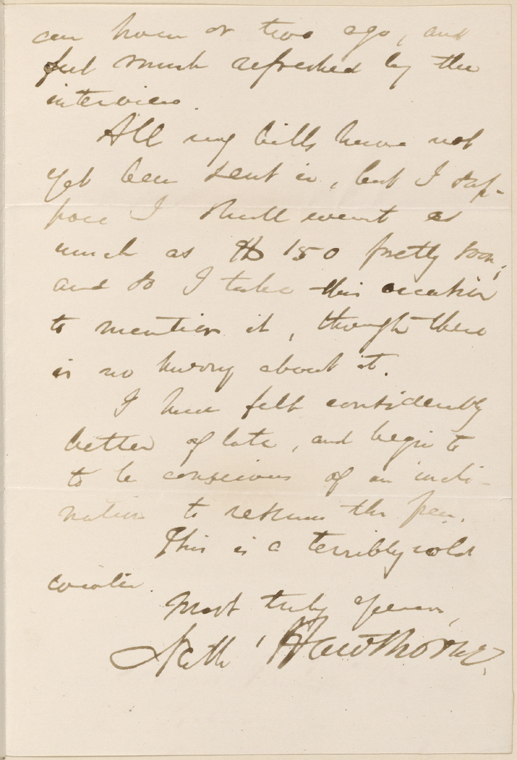 an hour or two ago, and
feel much refreshed by the
interview.
All my bills have not
yet been sent in, but I sup-
pose I shall want as
much as $150 pretty soon;
and so I take this occasion
to mention it, though there
is no hurry about it.
I have felt considerably
better of late, and begin to
to be conscious of an incli-
nation to resume the pen.
This is a terribly cold
winter.
Most truly yours,
Nath' Hawthorne.